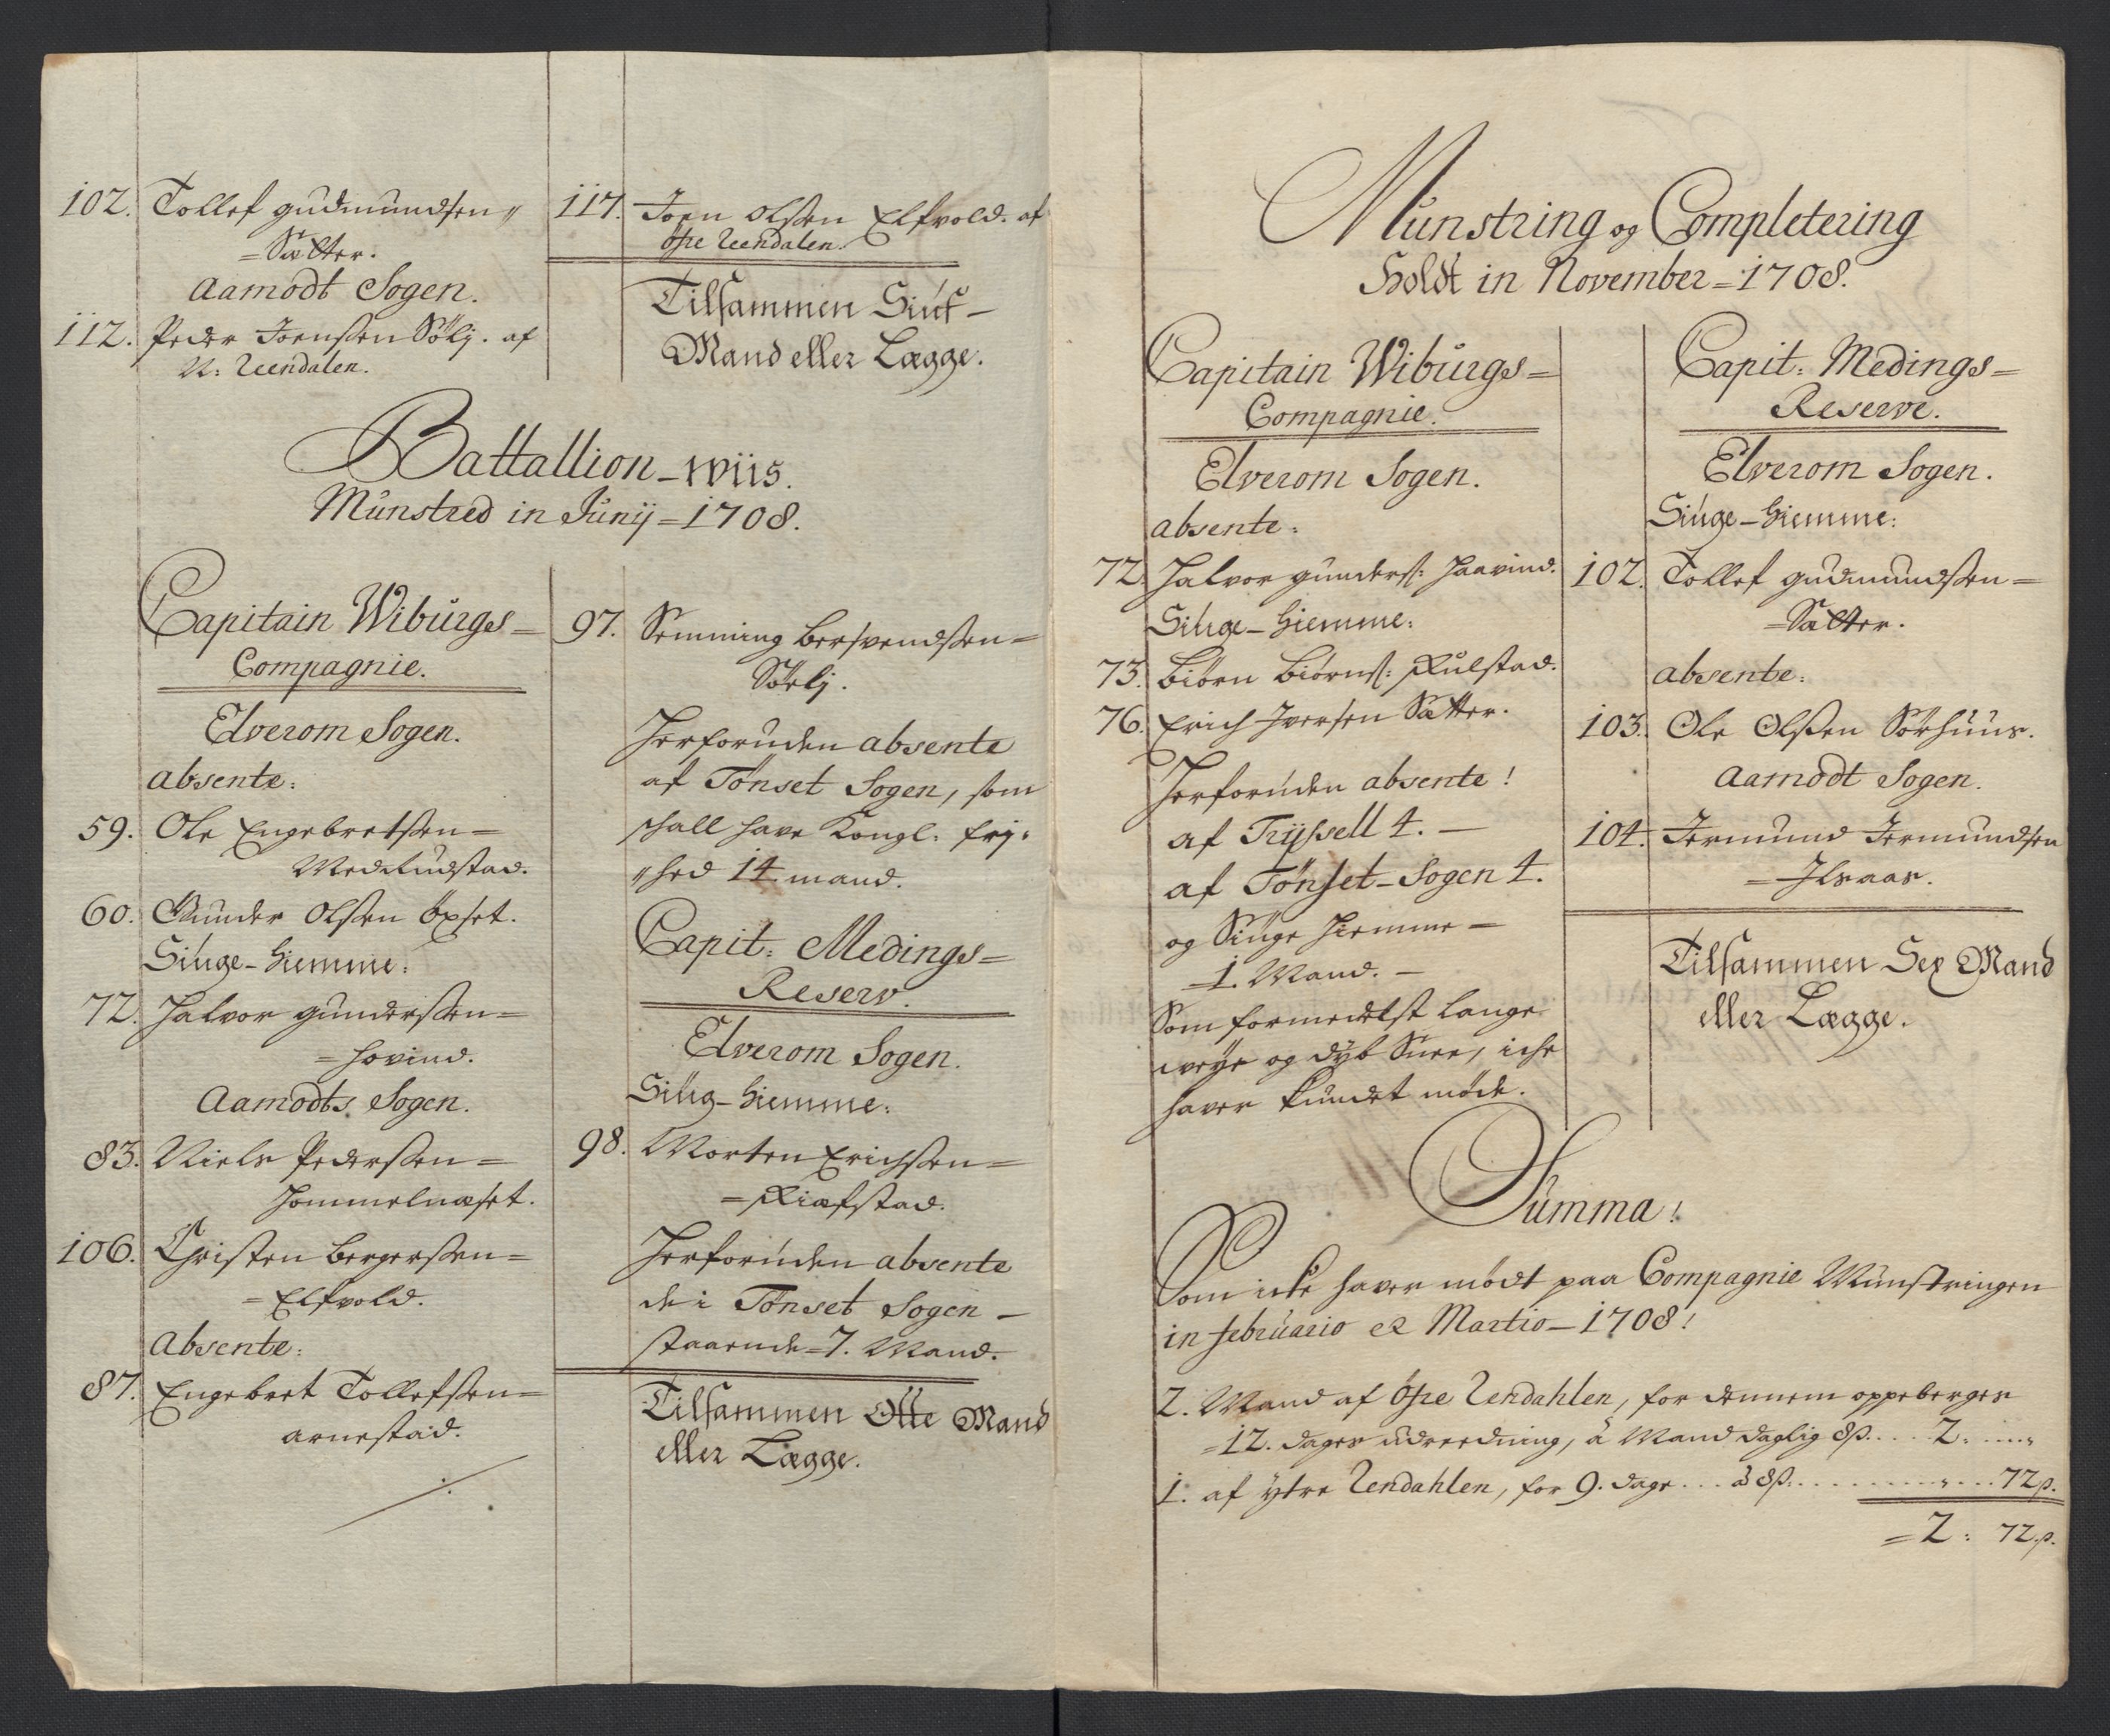 102. Tollef Gudmundsen
=Sätter.
Aamodt Sogen.
112. Peder Joenssen Sölj. af
N: Reendalen.
117. Joen Olssen Elfvold. af
öfre Reendalen.
Tilsammen Siuf-
Mand eller Lægge.
Battallion-wiis.
Munstred in Junij=1708.
Capitain Wiburgs=
Compagnie.
Elverom Sogen.
absente:
59. Ole Engebretssen=
Medskudstad.
60. Gunder Olssen Öxset.
Siuge-hiemme:
72. Halvor Gunderssen=
=hovind.
Aamodts Sogen.
83. Niels Pederssen=
Hommelnæset.
106. Christen Bergerssen=
=Elfvold.
Absente:
87. Engebret Tollefssen=
arnestad.
97. Semming Bersvendssen=
Sörlj.
Herforuden absente
af Tönset Sogen, som
schall have Kongl: frj-
hed 14. mand.
Capit: Medings=
Reserv.
Elverom Sogen.
Siug-hiemme:
98. Morten Erichssen=
=Kiæfstad.
Herforuden absente
de i Tönset Sogen-
staaende=7. Mand.
Tilsammen Otte Mand
eller Lægge.
Munstring og Completering
Holdt in November=1708.
Capitain Wiburgs=
Compagnie.
Elverom Sogen.
absente:
72. Halvor Gunders: Haavind.
Siuge-hiemme:
73. Biörn Biörns: Kulstad.
76. Erich Iversen Sætter.
Herforuden absente!
af Tryssell 4.-
af Tönset-Sogen 4.
og Siuge Hiemme-
=1. Mand.-
Som formedelst lange
weye og dyb Snee, iche
haver kundet möde.
Capit: Medings=
Reserve.
Elverom Sogen.
Siuge-hiemme:
102. Tollef Gudmundssen=
=Sätter.
absente:
103. Ole Olssen Sörhuus.
Aamodt Sogen.
104. Jermund Jermundsen
=Ilsaas.
Tilsammen Sex Mand
eller Lægge.
Summa!
Som icke haver mödt paa Compagnie Munstringen
in februario et Martio-1708!
2. Mand af Öfre Rendahlen, for dennem oppeberges
=12. dages udreedning, á Mand daglig 8ß.... 2. ....
1. af ytre Rendahlen, for 9. dage... á 8ß. ........ 72ß.
=2: 72.ß.